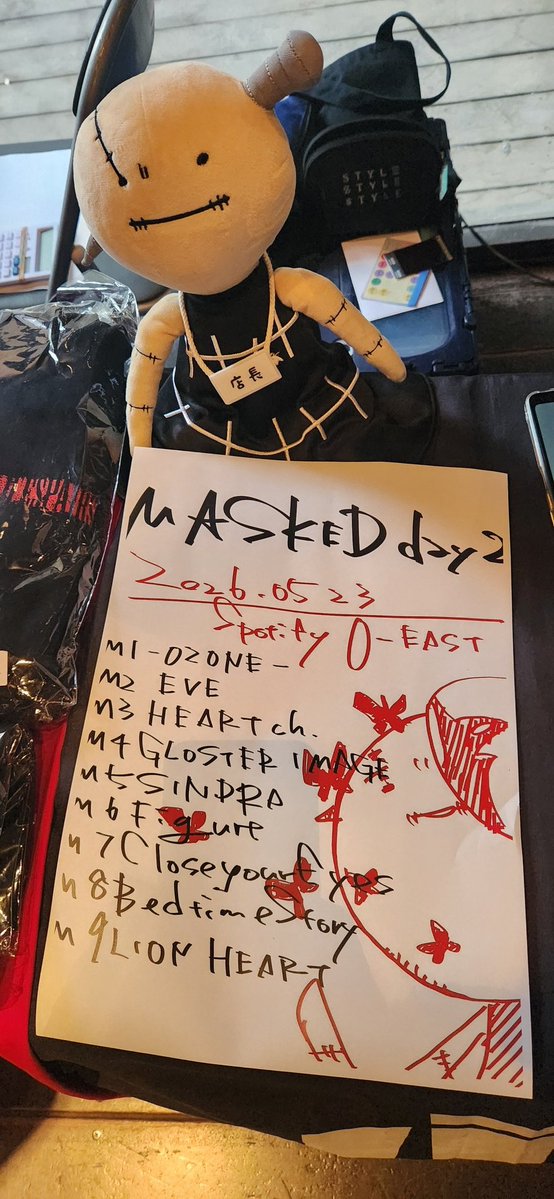 STYLE
STYLE
STYLE
店長
MASKED day2
2026.05.23
Spotify O-EAST
M1 -OZONE-
M2 EVE
M3 HEART ch.
M4 GLOSTER IMAGE
M5 SINDRA
M6 Figure
M7 Close your eyes
M8 Bedtime Story
M9 LION HEART